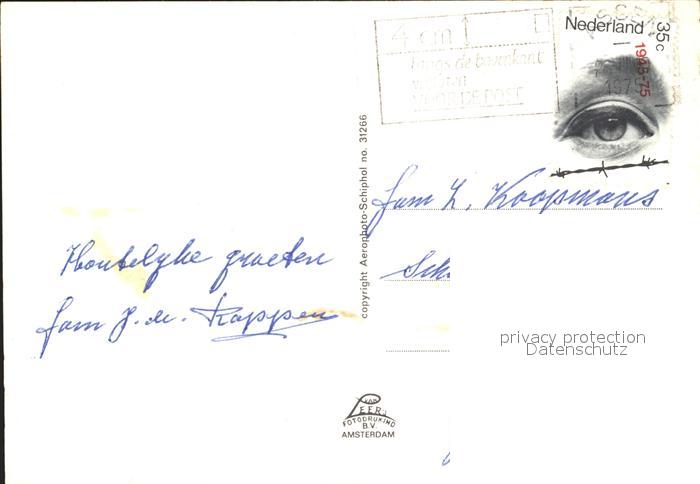 4 cm
langs de bovenkant
vrijlaten
VOOR DE POST
Nederland 35c
1945-75
copyright Aerophoto-Schiphol no. 31266
fam L. Koopmans
Sch
Hartelijke groeten
fam J. M. Kappen
privacy protection
Datenschutz
VAN
LEER'S
FOTODRUKIND
B.V.
AMSTERDAM